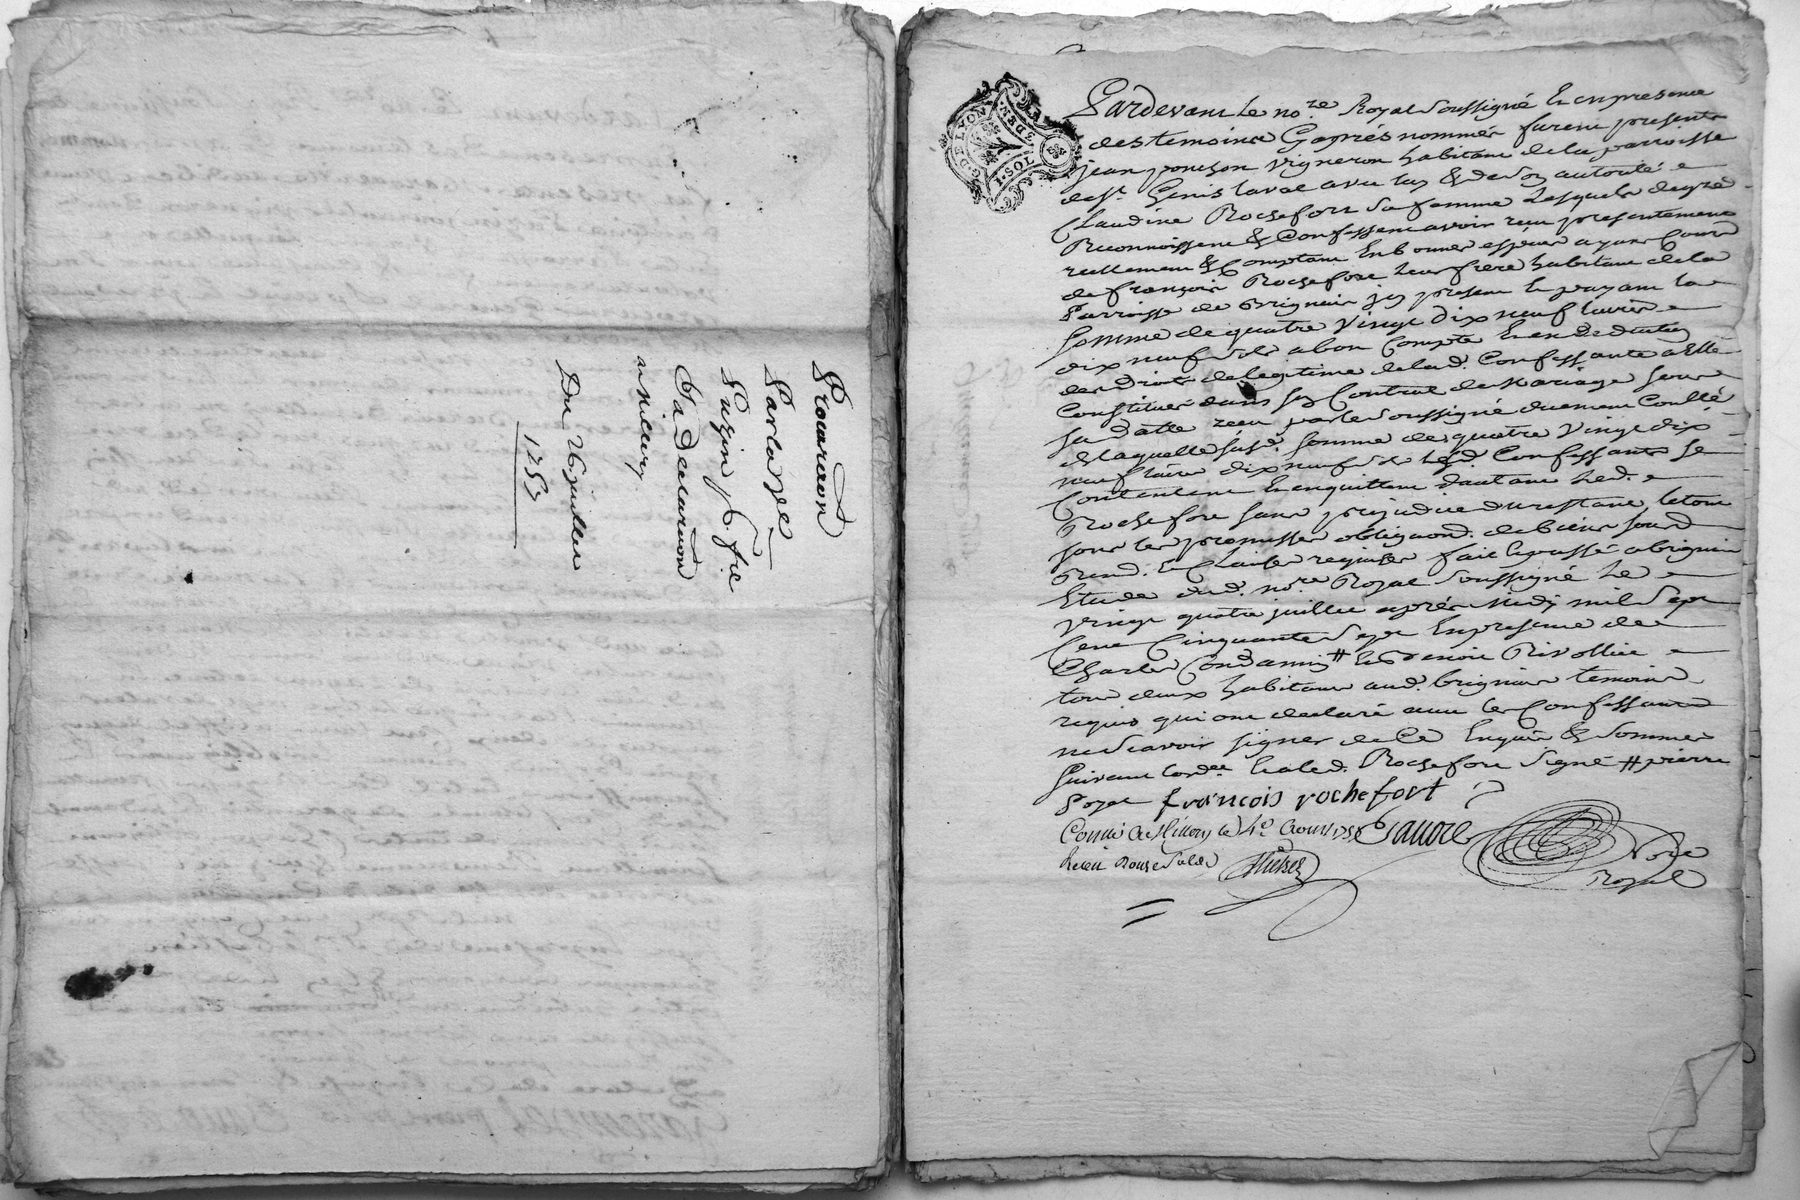 Procureon
Par la ve
Puzin p.r fie
Sa Declaration
a Milery
Du 26 juillet
1757
G. DE LYON
1·SOL
DEN.
Pardevant le no.re Royal Soussigné En presence
des temoins Cy apres nommés furent presents
jean ponson vigneron habitant de la parroisse
de st. Genis laval avec luy & de son autorité
Claudine Rochefort sa femme Lesquels de gré
Reconnoissent & Confessent avoir receu presentement
reellement & Comptant En bonnes espéces ayant Cours
de françois Rochefort leur frere habitant de la
Parroisse de Brignais icy present & payant la
Somme de quatre vingt dix neuf livres
dix neuf sols a bon Compte & en deduction
des droits de legitime de la d. Confessante a Elle
Constitués dans son Contrat de Mariage sous
sa datte receu par le soussigné duement Conllé
de laquelle susd. somme de quatre vingt dix
neuf livres dix neuf sols lesd. Confessants se
Contentent & en quittent d'autant led.
Rochefort sans prejudice du restant le tout
sous les promesses obligaons. de biens soumd.
Rend. & Clauses requises fait & passé a brignais
Etude dud. no.re Royal soussigné le
vingt quatre juillet aprés Midy mil sept
Cent Cinquante sept En presence de
Charles Condamin # & Benoit Rivollier
tous deux habitants aud. brignais temoins
requis qui ont declaré avec les Confessants
ne sçavoir signer de Ce Enquis & sommés
suivant lord.ce & a led. Rochefort signé # pierre
poyet françois rochefort
Conllé a Millery le 4e aoust 1757
Receu Douze sols
Nore
Royal